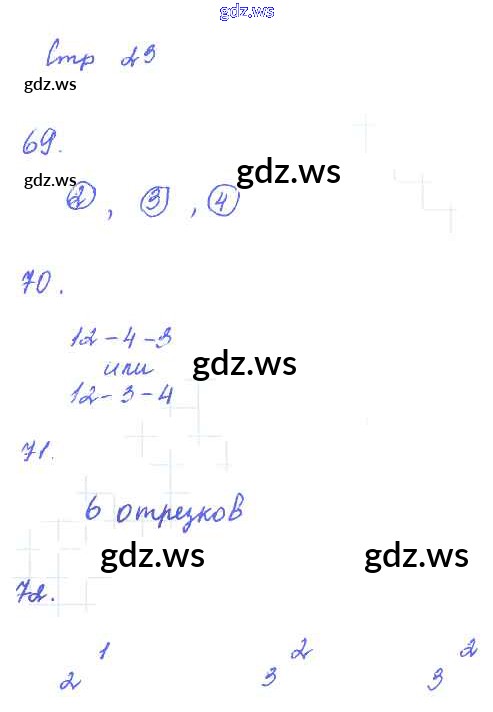 gdz.ws
Стр 23
gdz.ws
69.
gdz.ws
gdz.ws
2, 3, 4
70.
12-4-3
или
gdz.ws
12-3-4
71.
6 отрезков
gdz.ws gdz.ws
72.
1 2 2
2 3 3